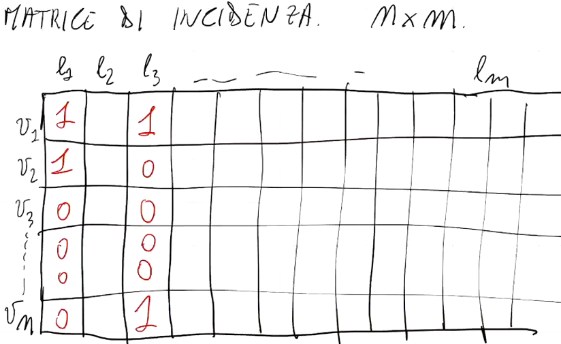 MATRICE DI INCIDENZA. n×m.
l1 l2 l3 lm
v1 1 1
v2 1 0
v3 0 0
0 0
0 0
vn 0 1